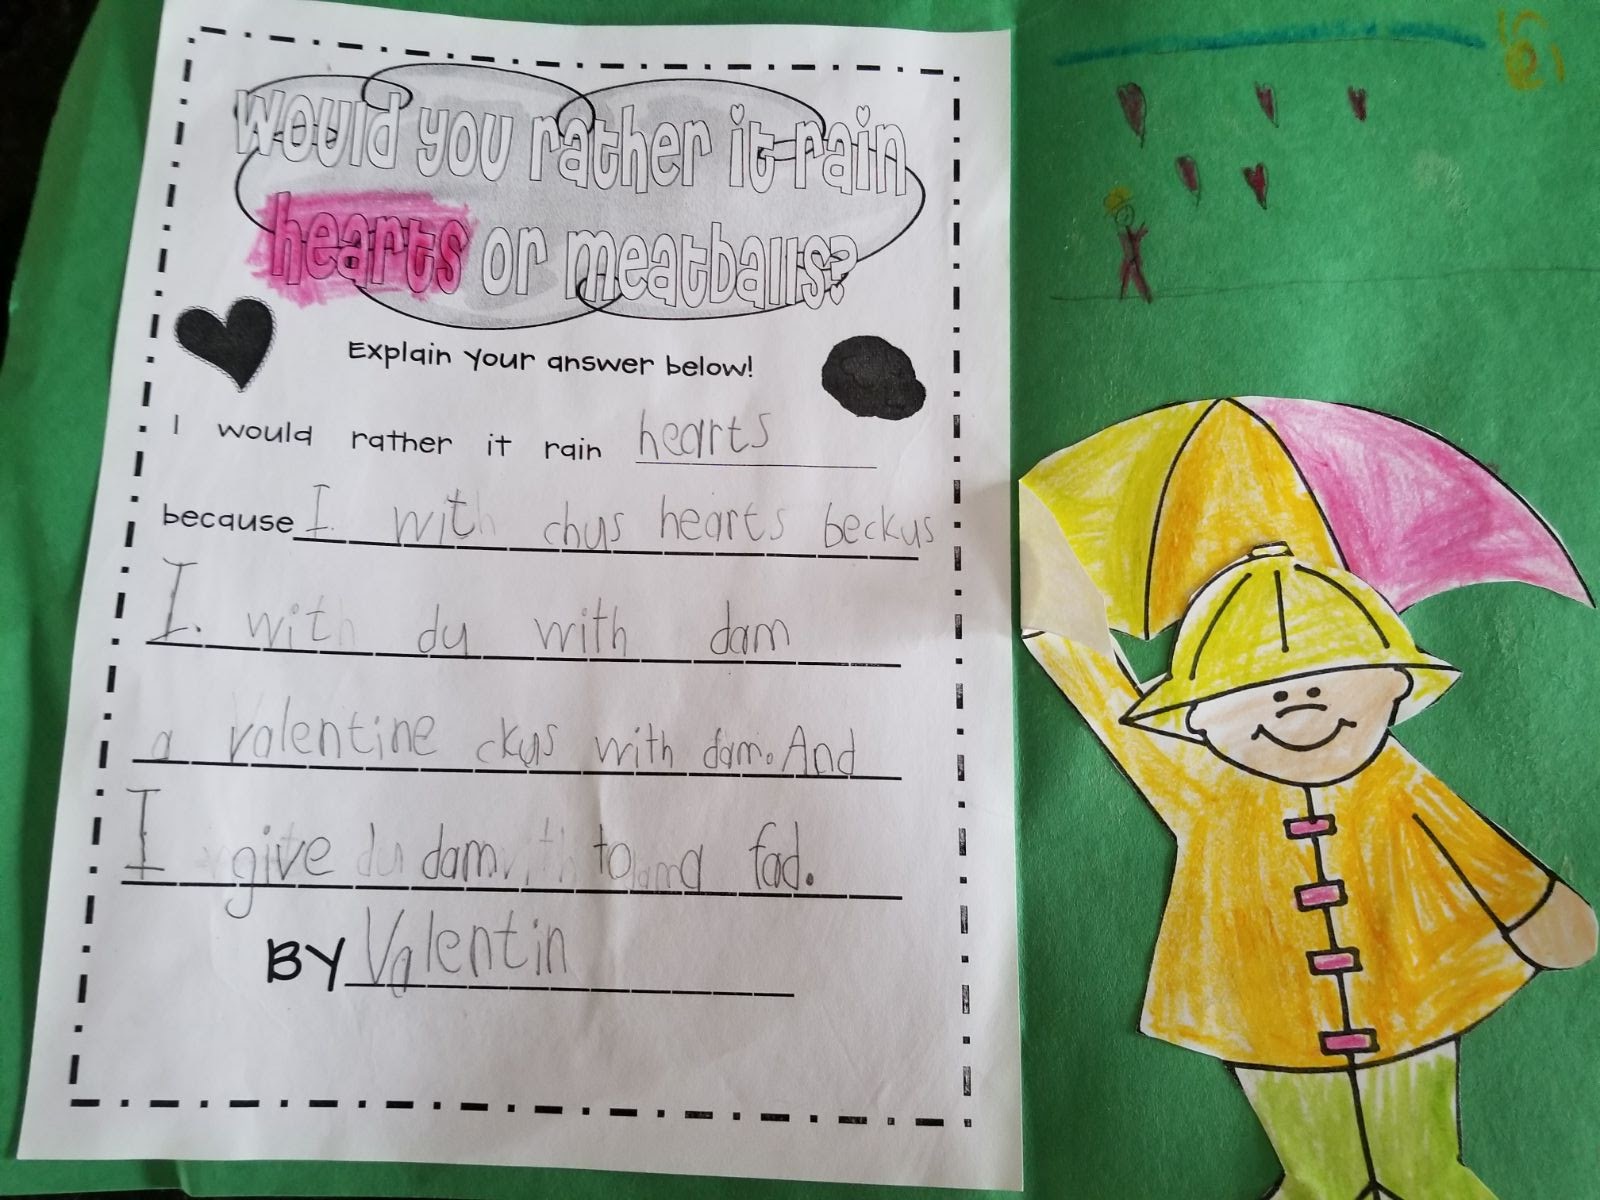 Would you rather it rain
hearts or meatballs?
Explain your answer below!
I would rather it rain hearts
because I. with chus hearts beckus
I. with du with dam
a valentine ckus with dam. And
I give dam to ma fad.
BY Valentin